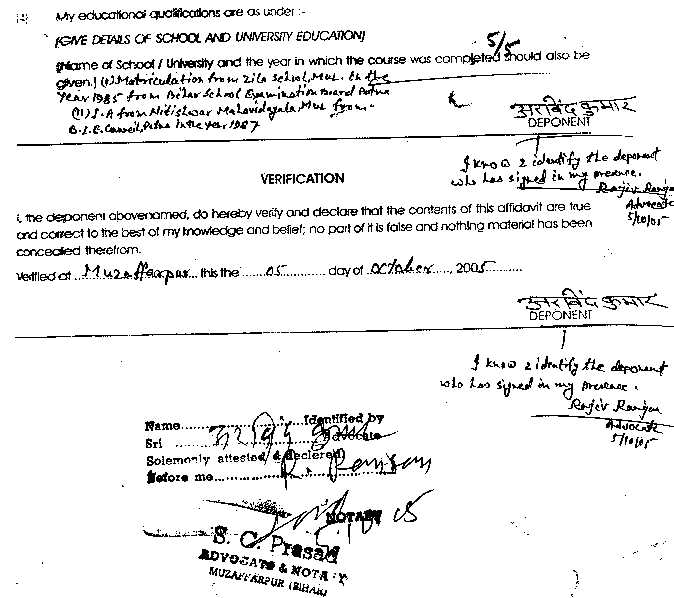 (4) My educational qualifications are as under :-
[GIVE DETAILS OF SCHOOL AND UNIVERSITY EDUCATION]
5/5
(Name of School / University and the year in which the course was completed should also be
given.) (i) Matriculation from Zila School, Muz. In the
Year 1985 from Bihar School Examination Board Patna
(ii) I.A from Nitishwar Mahavidyala, Muz from
B.I.E. Council, Patna in the year 1987
अरविंद कुमार
DEPONENT
I know & identify the deponent
who has signed in my presence.
Rajiv Ranjan
Advocate
5/10/05
VERIFICATION
I, the deponent abovenamed, do hereby verify and declare that the contents of this affidavit are true
and correct to the best of my knowledge and belief; no part of it is false and nothing material has been
concealed therefrom.
Verified at Muzaffarpur this the 05 day of October, 2005
अरविंद कुमार
DEPONENT
I know & identify the deponent
who has signed in my presence.
Rajiv Ranjan
Advocate
5/10/05
Name Identified by
Sri अरविंद कुमार Advocate
Solemonly attested & declered
Before me R. Ranjan
NOTARY
S. C. Prasad
ADVOCATE & NOTARY
MUZAFFARPUR (BIHAR)